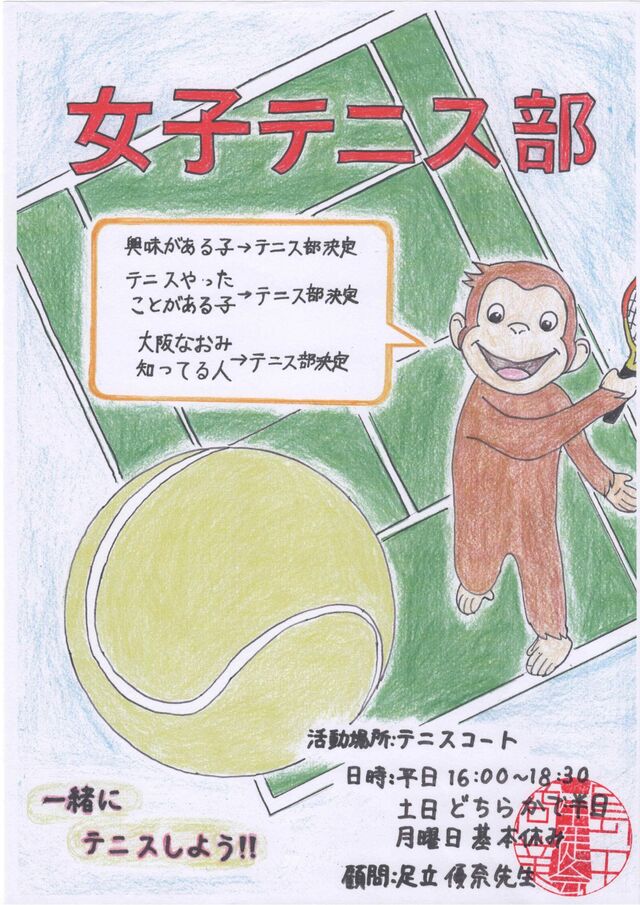 女子テニス部
興味がある子→テニス部決定
テニスやった
ことがある子→テニス部決定
大阪なおみ
知ってる人→テニス部決定
活動場所:テニスコート
日時:平日16:00~18:30
土日どちらかで半日
月曜日基本休み
顧問:足立優奈先生
一緒に
テニスしよう!!